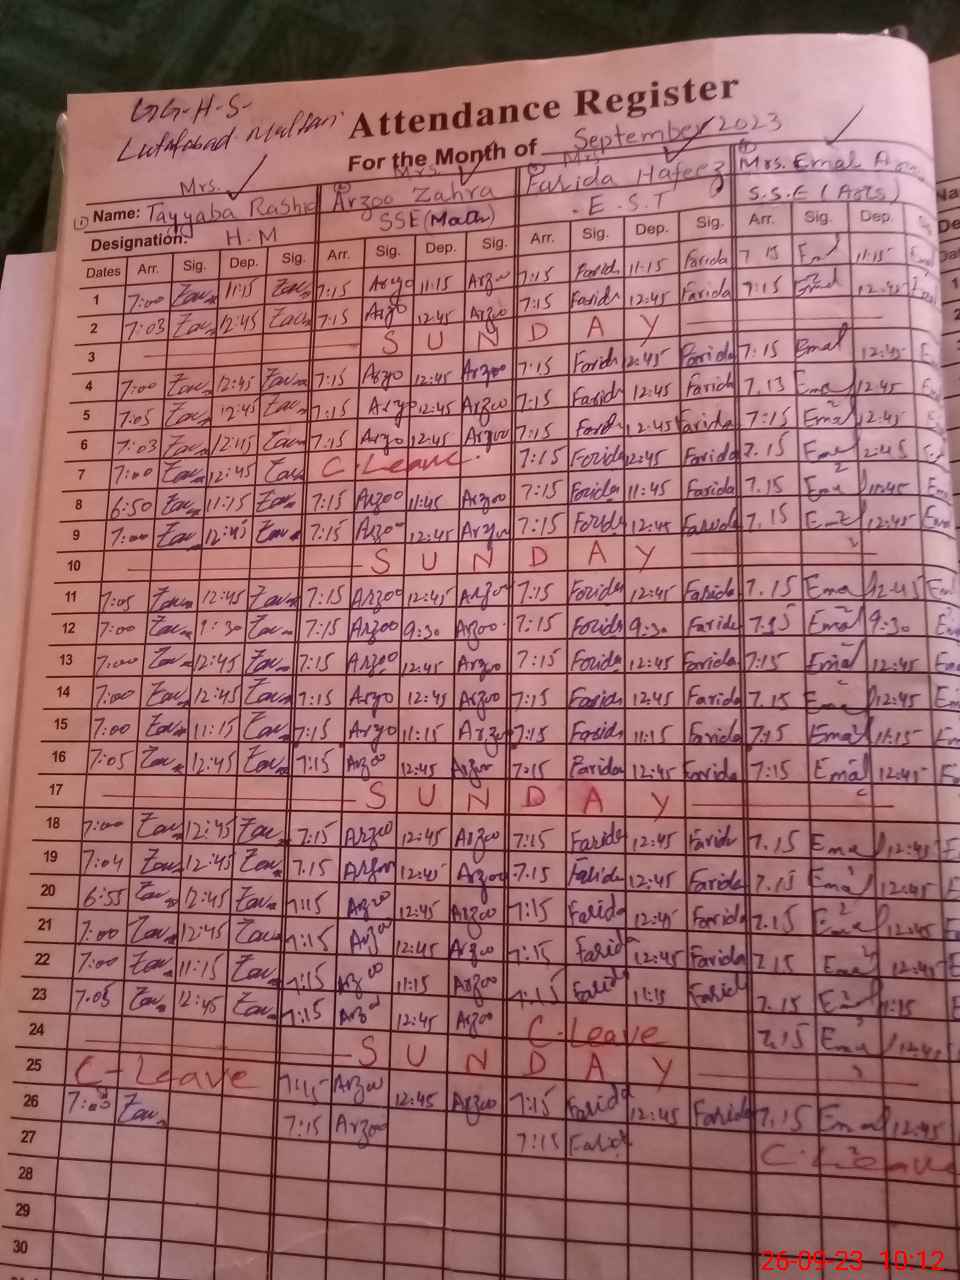 GG-H-S-
Lutafabad Multan
Attendance Register
For the Month of September 2023
Mrs. Mrs. Mrs.
Name: Tayyaba Rashid Arzoo Zahra Farida Hafeez Mrs. Emal
Designation: H.M SSE(Math) E.S.T S.S.E (Arts)
Dates Arr. Sig. Dep. Sig. Arr. Sig. Dep. Sig. Arr. Sig. Dep. Sig. Arr. Sig. Dep.
1 7:00 11:15 7:15 Arzoo 11:15 Arzoo 7:15 Farida 11:15 Farida 7.15 Emal 11:15
2 7:03 12:45 7:15 Arzoo 12:45 Arzoo 7:15 Farida 12:45 Farida 7:15 Emal 12:45
3 S U N D A Y
4 7:00 12:45 7:15 Arzoo 12:45 Arzoo 7:15 Farida 12:45 Farida 7:15 Emal 12:45
5 7:05 12:45 7:15 Arzoo 12:45 Arzoo 7:15 Farida 12:45 Farida 7.15 Emal 12:45
6 7:03 7:15 Arzoo 12:45 Arzoo 7:15 Farida 12:45 Farida 7:15 Emal 12:45
7 7:00 12:45 C-Leave 7:15 Farida 12:45 Farida 7.15 Emal 12:45
8 6:50 11:15 7:15 Arzoo 11:45 Arzoo 7:15 Farida 11:45 Farida 7.15 Emal 11:45
9 7:00 12:45 7:15 Arzoo 12:45 Arzoo 7:15 Farida 12:45 Farida 7.15 Emal 12:45
10 S U N D A Y
11 7:05 12:45 7:15 Arzoo 12:45 Arzoo 7:15 Farida 12:45 Farida 7.15 Emal 12:45
12 7:00 9:30 7:15 Arzoo 9:30 Arzoo 7:15 Farida 9:30 Farida 7:15 Emal 9:30
13 7:00 12:45 7:15 Arzoo 12:45 Arzoo 7:15 Farida 12:45 Farida 7:15 Emal 12:45
14 7:00 12:45 7:15 Arzoo 12:45 Arzoo 7:15 Farida 12:45 Farida 7.15 Emal 12:45
15 7:00 11:15 7:15 Arzoo 11:15 Arzoo 7:15 Farida 11:15 Farida 7:15 Emal 11:15
16 7:05 12:45 7:15 Arzoo 12:45 Arzoo 7:15 Farida 12:45 Farida 7:15 Emal 12:45
17 S U N D A Y
18 7:00 12:45 7:15 Arzoo 12:45 Arzoo 7:15 Farida 12:45 Farida 7.15 Emal 12:45
19 7:04 12:45 7.15 Arzoo 12:45 Arzoo 7.15 Farida 12:45 Farida 7.15 Emal 12:45
20 6:55 12:45 7:15 Arzoo 12:45 Arzoo 7:15 Farida 12:45 Farida 7.15 Emal 12:45
21 7:00 12:45 7:15 Arzoo 12:45 Arzoo 7:15 Farida 12:45 Farida 7.15 Emal 12:45
22 7:00 11:15 7:15 Arzoo 11:15 Arzoo 7:15 Farida 11:15 Farida 7.15 Emal 11:15
23 7:05 12:45 7:15 Arzoo 12:45 Arzoo C-Leave 7:15 Emal 12:45
24 S U N D A Y
25 C-Leave 7:15 Arzoo 12:45 Arzoo 7:15 Farida 12:45 Farida 7.15 Emal 12:45
26 7:03 7:15 Arzoo 7:15 Farida C-Leave
27
28
29
30
26-09-23 10:12